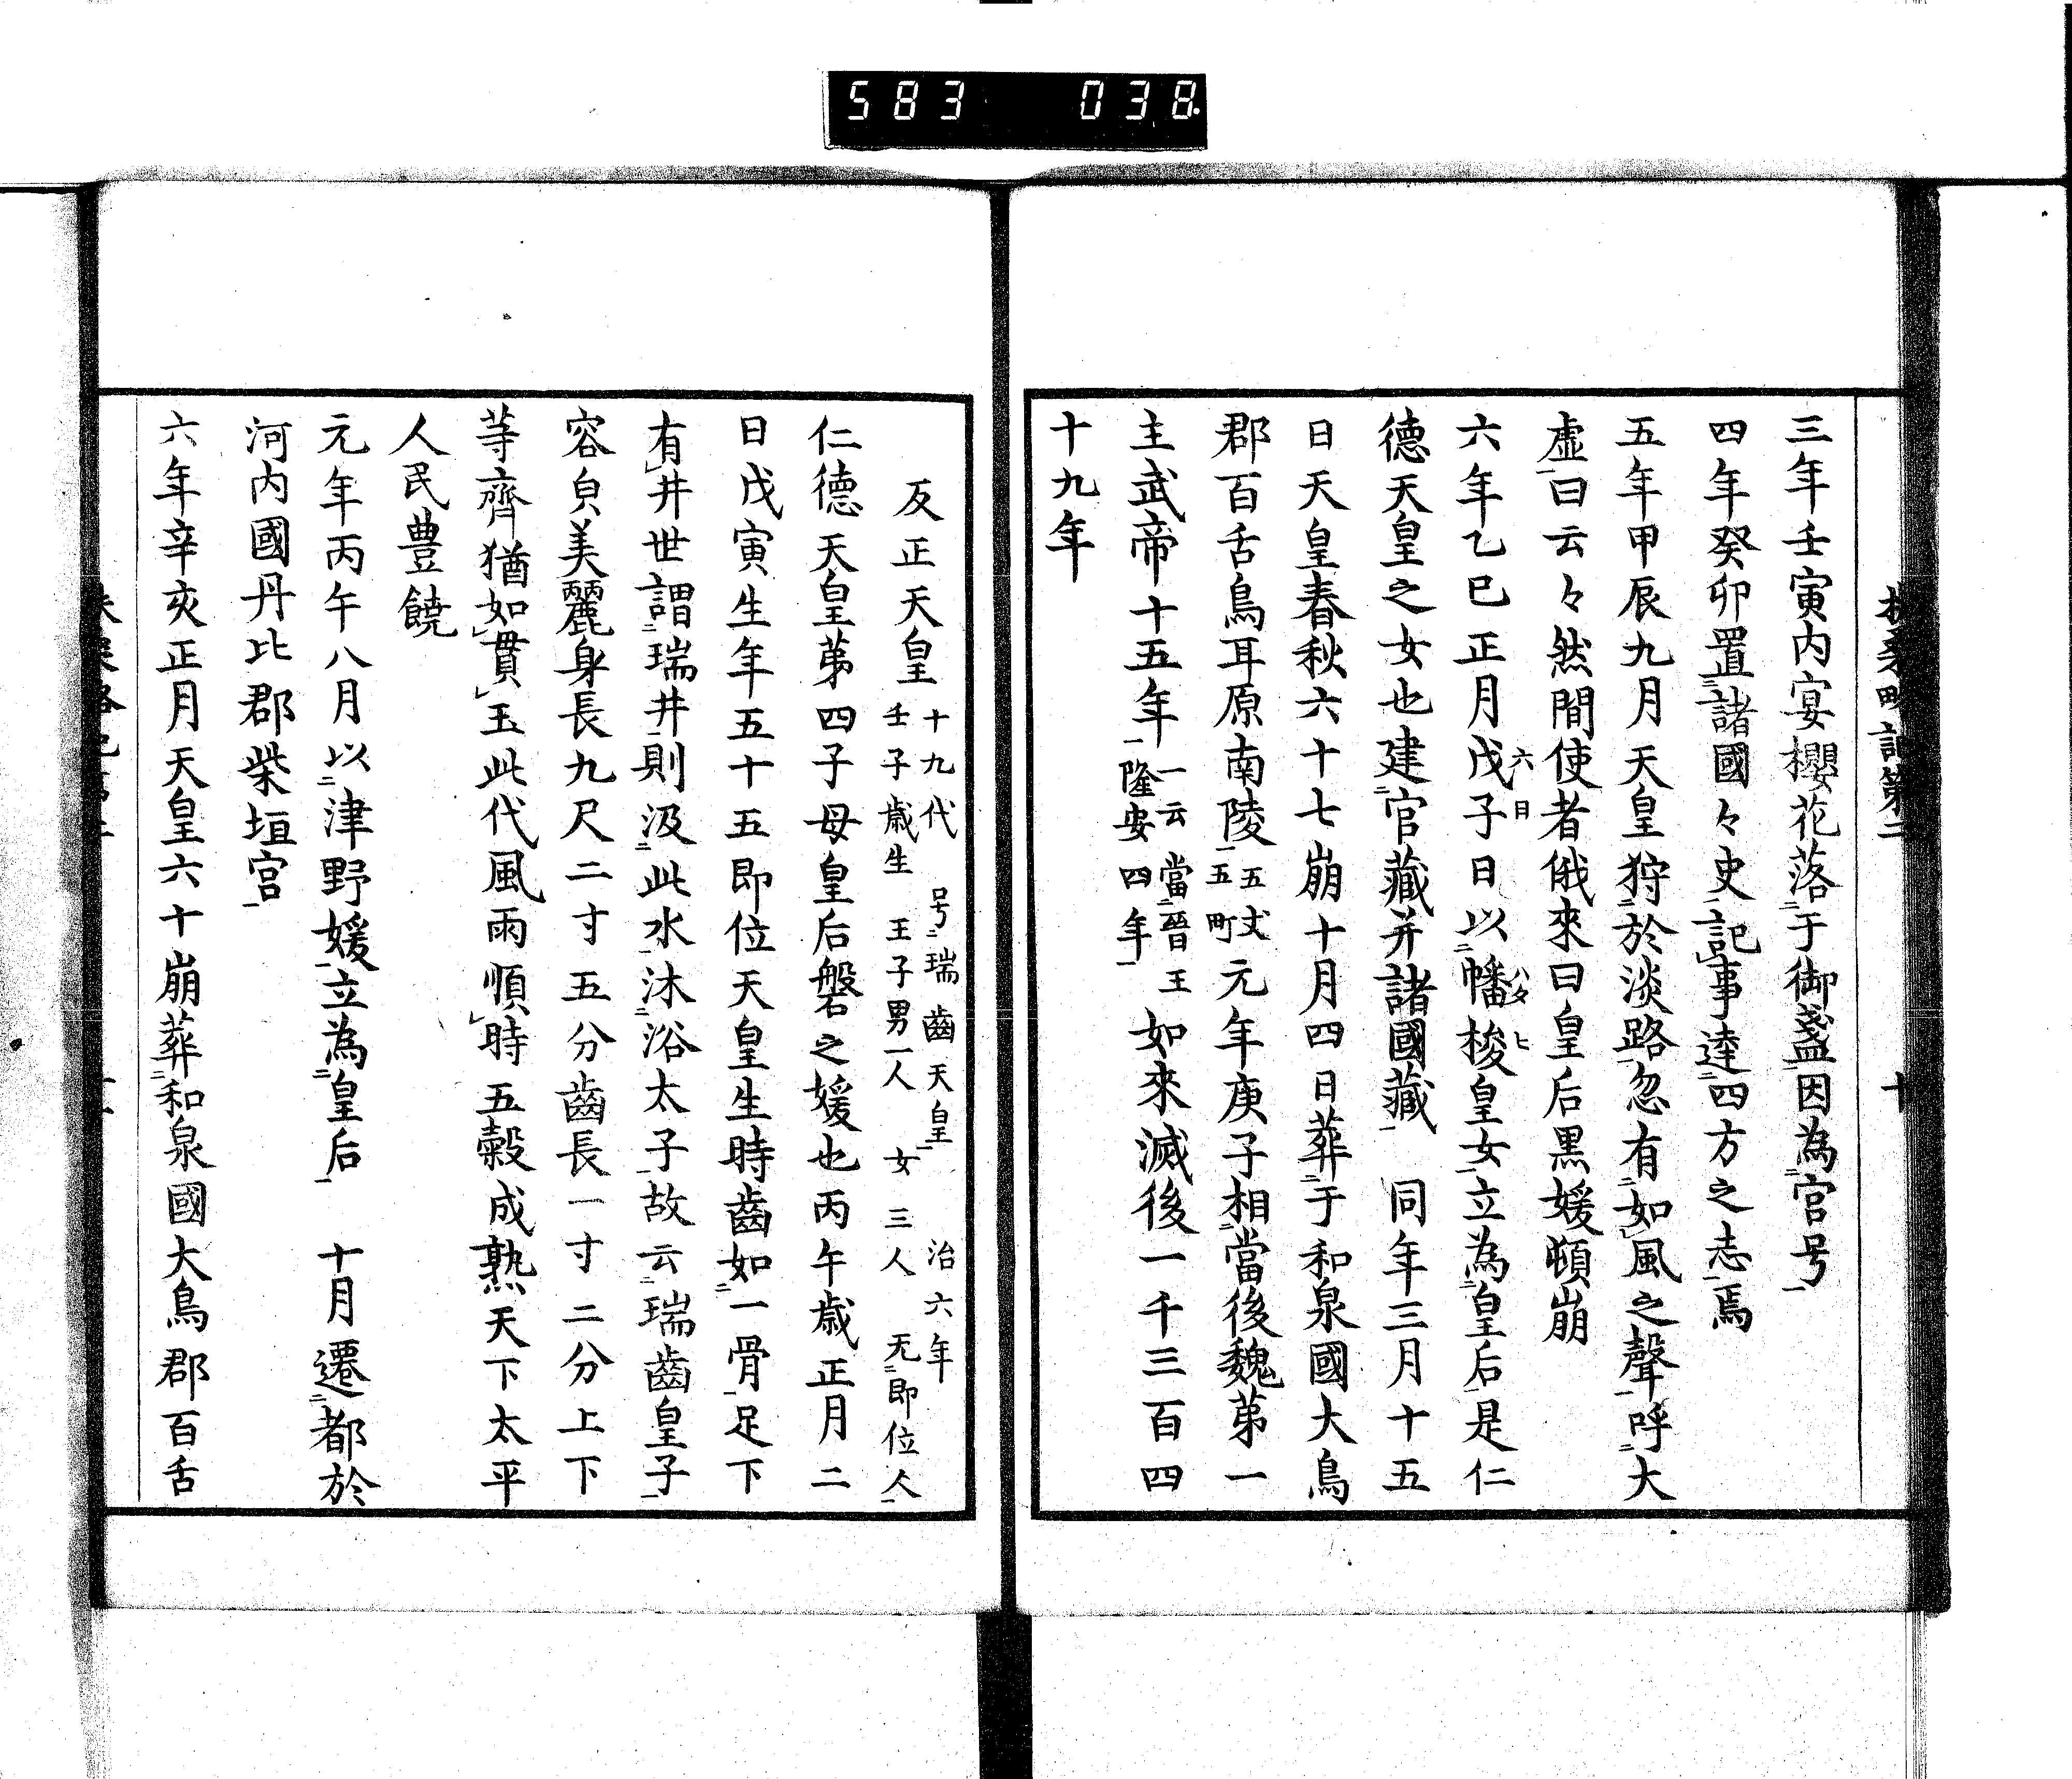 583 038
三年壬寅内宴櫻花落于御盞因為宮号
四年癸卯置諸國々史記事達四方之志焉
五年甲辰九月天皇狩於淡路忽有如風之聲呼大
虚曰云々然間使者俄來曰皇后黒媛頓崩
六年乙巳正月戊子日以幡梭皇女立為皇后是仁
六日
ハタ ヒ
德天皇之女也建官藏并諸國藏 同年三月十五
日天皇春秋六十七崩十月四日葬于和泉國大鳥
郡百舌鳥耳原南陵五丈五町元年庚子相當後魏第一
主武帝十五年一云當晉王隆安四年如來滅後一千三百四
十九年
反正天皇
十九代 号瑞齒天皇 治六年
壬子歲生 王子男一人 女三人 无即位人
仁德天皇第四子母皇后磐之媛也丙午歲正月二
日戊寅生年五十五即位天皇生時齒如一骨足下
有井世謂瑞井則汲此水沐浴太子故云瑞齒皇子
容㒵美麗身長九尺二寸五分齒長一寸二分上下
等齊猶如貫玉此代風雨順時五穀成熟天下太平
人民豊饒
元年丙午八月以津野媛立為皇后 十月遷都於
河内國丹比郡柴垣宮
六年辛亥正月天皇六十崩葬和泉國大鳥郡百舌